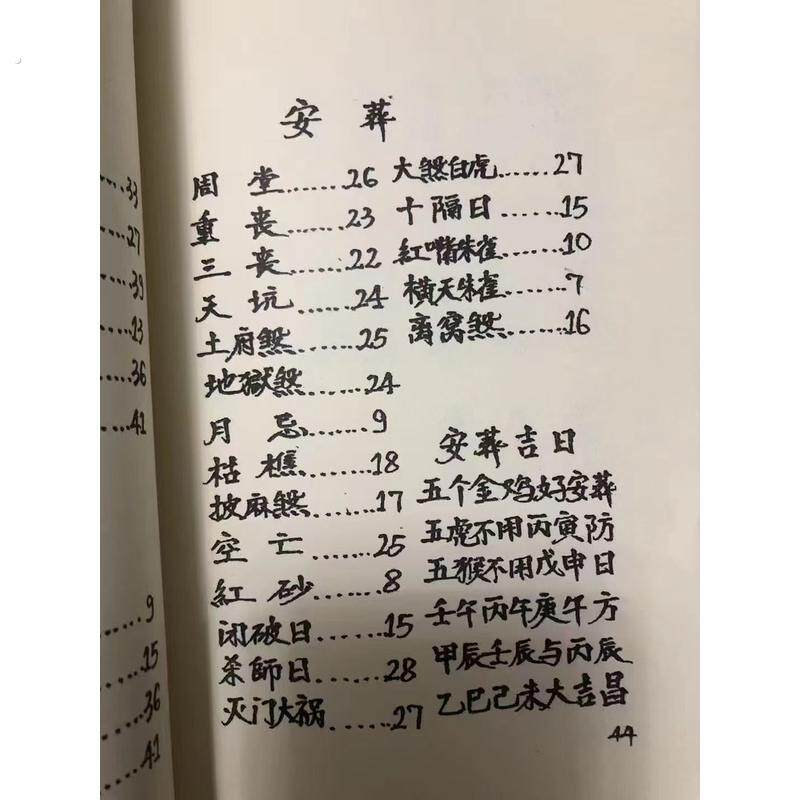 33
27
39
13
36
41
9
15
36
41
安 葬
周 堂......26
重 丧......23
三 丧......22
天 坑......24
土府煞......25
地獄煞......24
月 忌......9
枯 樵......18
披麻煞......17
空 亡......25
紅 砂......8
闭破日......15
杀師日......28
灭门大祸......27
大煞白虎......27
十隔日......15
紅嘴朱雀......10
横天朱雀......7
离窝煞......16
安葬吉日
五个金鸡好安葬
五虎不用丙寅防
五猴不用戊申日
壬午丙午庚午方
甲辰壬辰与丙辰
乙巳己未大吉昌
44